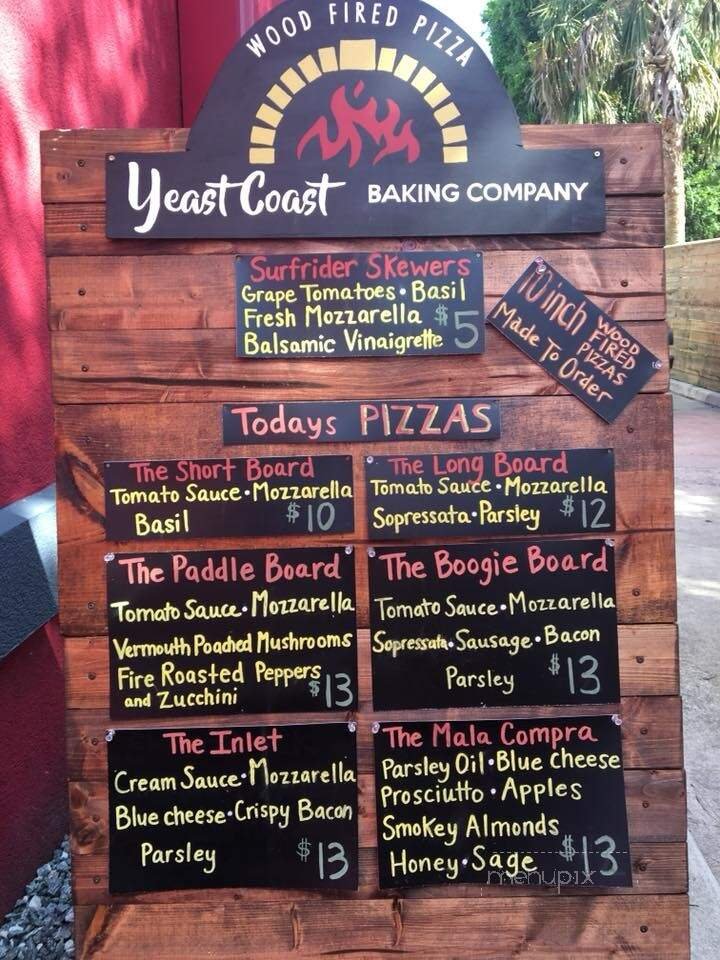 WOOD FIRED PIZZA
Yeast Coast BAKING COMPANY
Surfrider Skewers
Grape Tomatoes • Basil
Fresh Mozzarella $5
Balsamic Vinaigrette
10 inch WOOD FIRED PIZZAS
Made To Order
Todays PIZZAS
The Short Board
Tomato Sauce • Mozzarella
Basil $10
The Long Board
Tomato Sauce • Mozzarella
Sopressata • Parsley $12
The Paddle Board
Tomato Sauce • Mozzarella
Vermouth Poached Mushrooms
Fire Roasted Peppers
and Zucchini $13
The Boogie Board
Tomato Sauce • Mozzarella
Sopressata • Sausage • Bacon
Parsley $13
The Inlet
Cream Sauce • Mozzarella
Blue cheese • Crispy Bacon
Parsley $13
The Mala Compra
Parsley Oil • Blue cheese
Prosciutto • Apples
Smokey Almonds
Honey • Sage $13
menupix